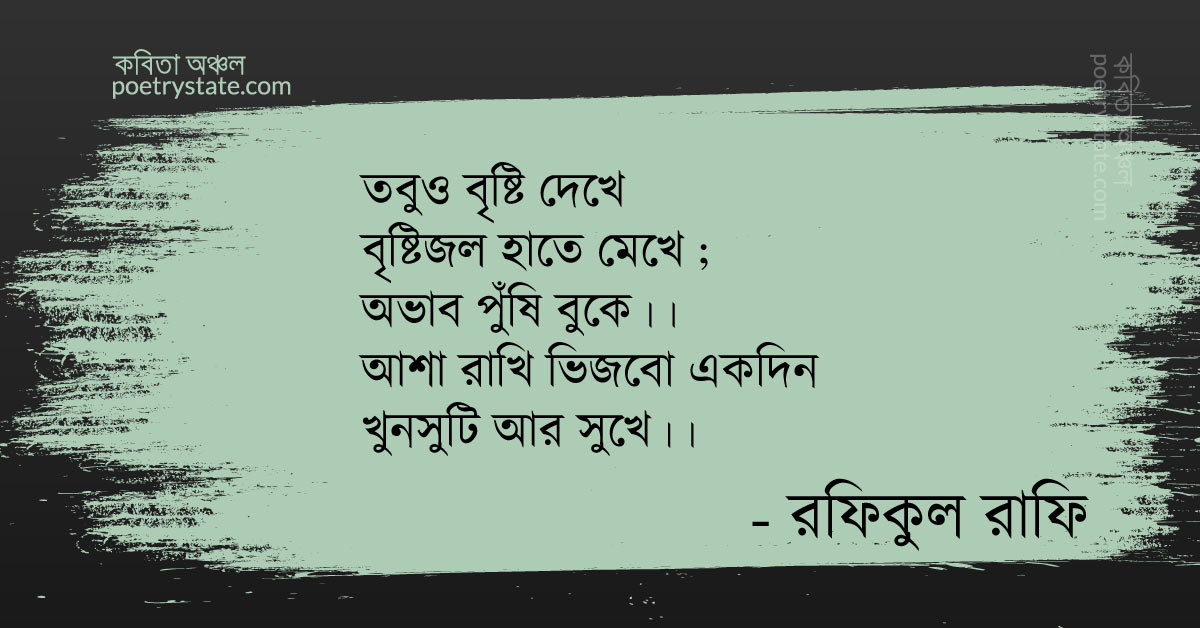 কবিতা অঞ্চল
poetrystate.com
তবুও বৃষ্টি দেখে
বৃষ্টিজল হাতে মেখে ;
অভাব পুঁষি বুকে।।
আশা রাখি ভিজবো একদিন
খুনসুটি আর সুখে।।
- রফিকুল রাফি
কবিতা অঞ্চল
poetrystate.com